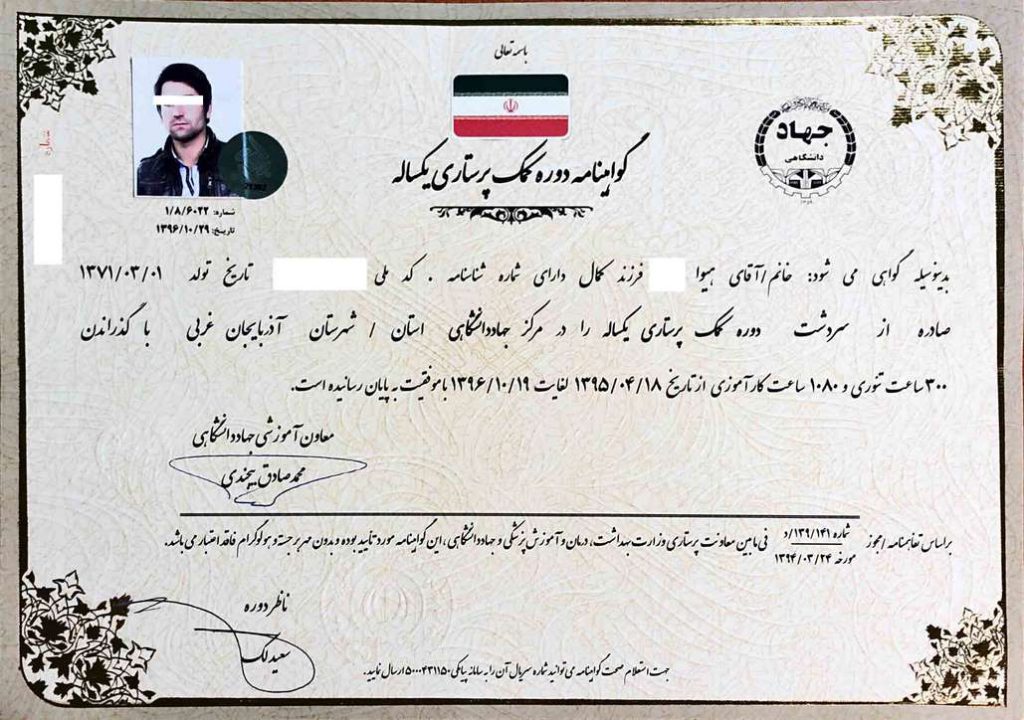 باسمه تعالی
گواهینامه دوره کمک پرستاری یکساله
جهاد
دانشگاهی
۱۳۵۹
شماره
شماره: ۱/۸/۶۰۲۲
تاریخ: ۱۳۹۶/۱۰/۲۹
بدینوسیله گواهی می شود: خانم/آقای هیوا فرزند کمال دارای شماره شناسنامه . کد ملی تاریخ تولد ۱۳۷۱/۰۳/۰۱
صادره از سردشت دوره کمک پرستاری یکساله را در مرکز جهاددانشگاهی استان / شهرستان آذربایجان غربی با گذراندن
۳۰۰ ساعت تئوری و ۱۰۸۰ ساعت کارآموزی از تاریخ ۱۳۹۵/۰۴/۱۸ لغایت ۱۳۹۶/۱۰/۱۹ باموفقیت به پایان رسانیده است.
معاون آموزشی جهاددانشگاهی
محمدصادق بیجندی
براساس تفاهمنامه/مجوز شماره ۱۳۹/۱۴۱/د مورخه ۱۳۹۴/۰۳/۲۴ فی مابین معاونت پرستاری وزارت بهداشت، درمان و آموزش پزشکی و جهاددانشگاهی، این گواهینامه مورد تایید بوده و بدون مهر برجسته و هولوگرام فاقد اعتبار می باشد.
ناظر دوره
سعید لک
جهت استعلام صحت گواهینامه می توانید شماره سریال آن را به سامانه پیامکی ۵۰۰۰۴۳۱۱۵۰ ارسال نمایید.